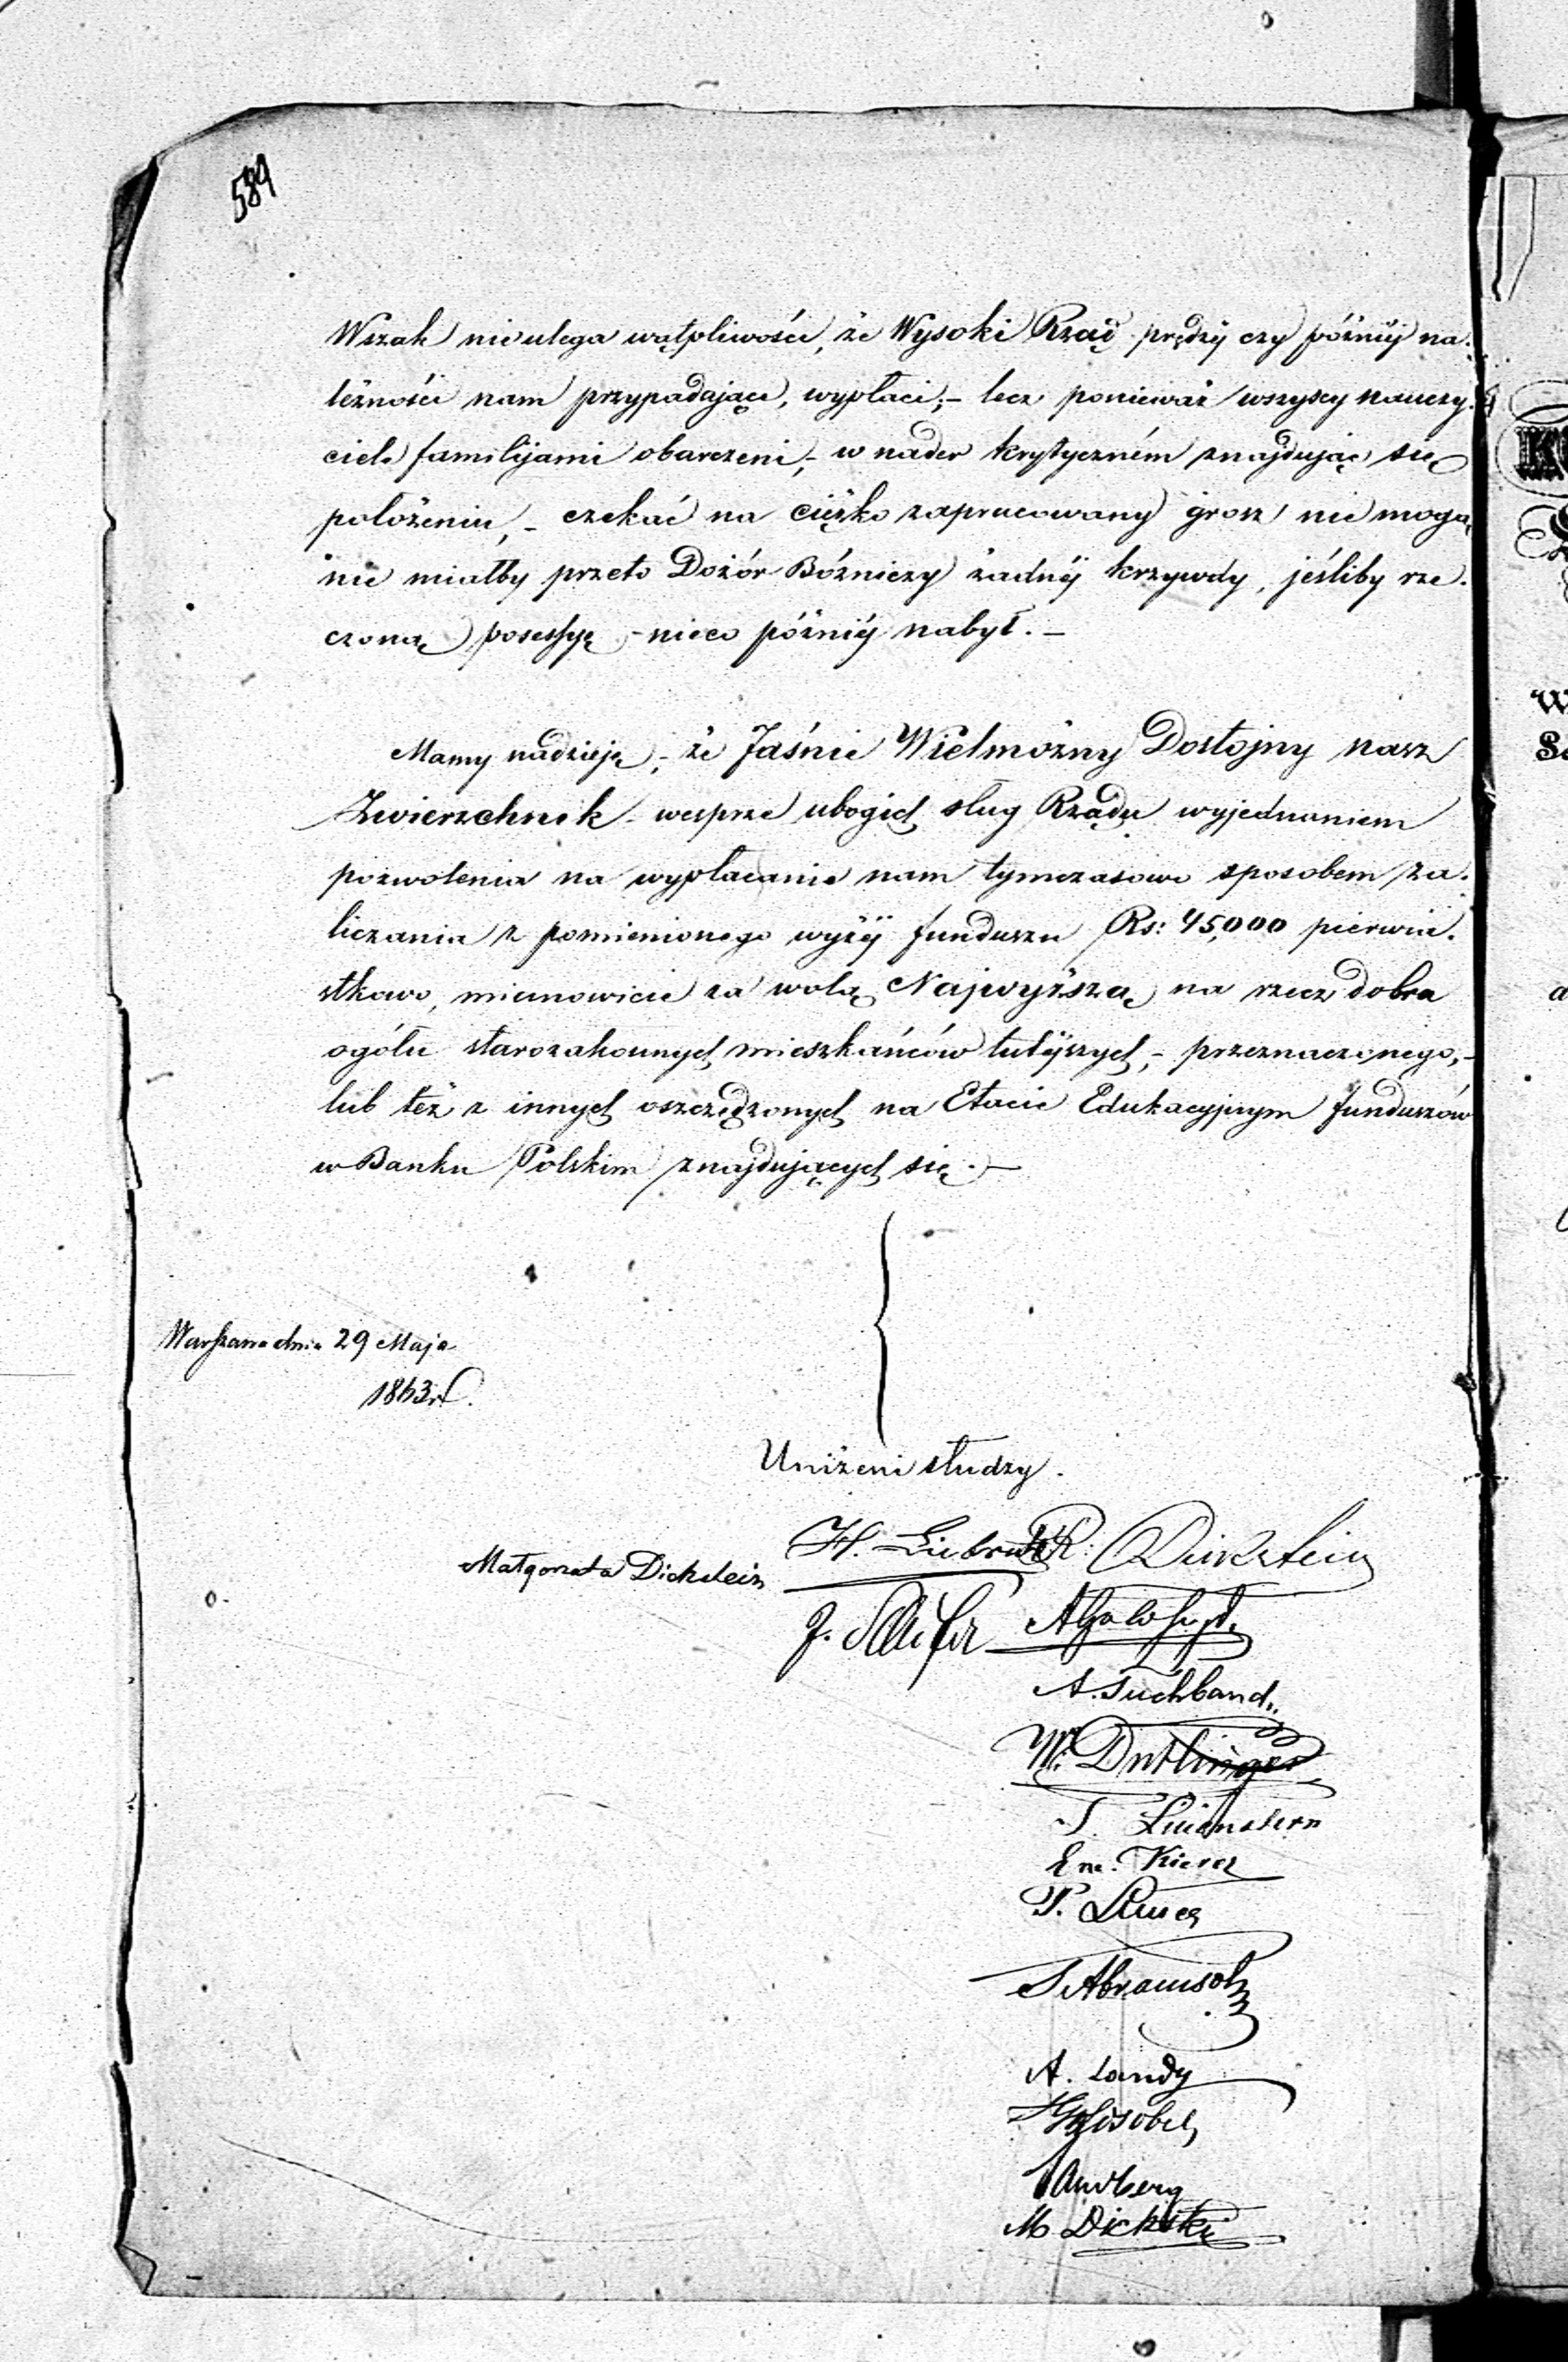 584
Wszak nie ulega wątpliwości, że Wysoki Rząd prędzéj czy późniéj na-
leżności nam przypadające, wypłaci;- lecz ponieważ wszyscy nauczy-
ciele familijami obarczeni,- w nader krytyczném znajdując się
położeniu,- czekać na ciężko zapracowany grosz nie mogą
nie miałby przeto Dozór Bóżniczy żadnéj krzywdy, jeśliby rze-
czoną possessyę - nieco późniéj nabył. -
Mamy nadzieję,- że Jaśnie Wielmożny Dostojny nasz
Zwierzchnik - wesprze ubogich sług Rządu wyjednaniem
pozwolenia na wypłacanie nam tymczasowo sposobem za-
liczania z pomienionego wyżéj funduszu Rs: 45,000 pierwia-
stkowo, mianowicie za wolą Najwyższą na rzecz dobra
ogółu starozakonnych mieszkańców tutéjszych,- przeznaczonego,-
lub też z innych oszczędzonych na Etacie Edukacyjnym funduszów
w Banku Polskim znajdujących się. -
Warszawa dnia 29 Maja
1863 r.
Uniżeni słudzy.
Małgorzata Dickstein
A. Tuchband
Em. Kierez
S Abramsohn
A. Landy